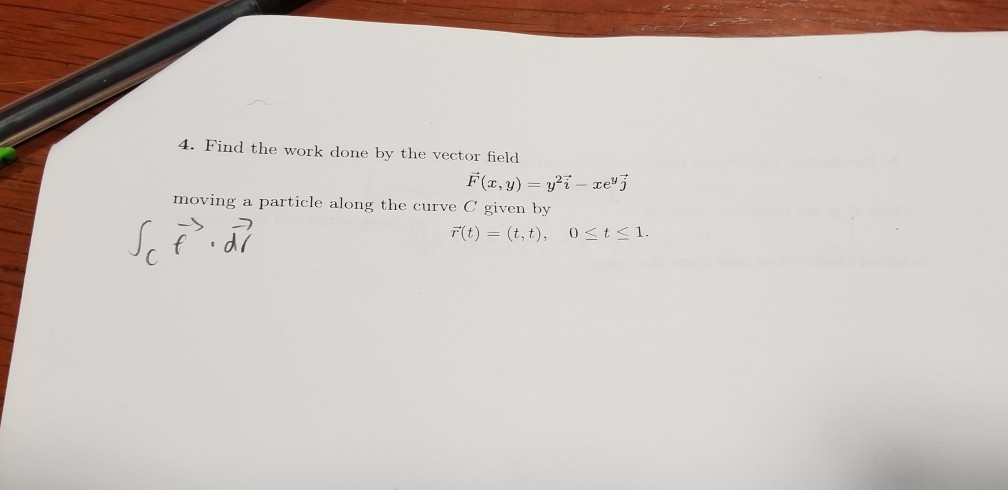 4. Find the work done by the vector field
F⃗(x, y) = y²i⃗ − xeʸj⃗
moving a particle along the curve C given by
r⃗(t) = (t, t),   0 ≤ t ≤ 1.
∫_C F⃗ · dr⃗